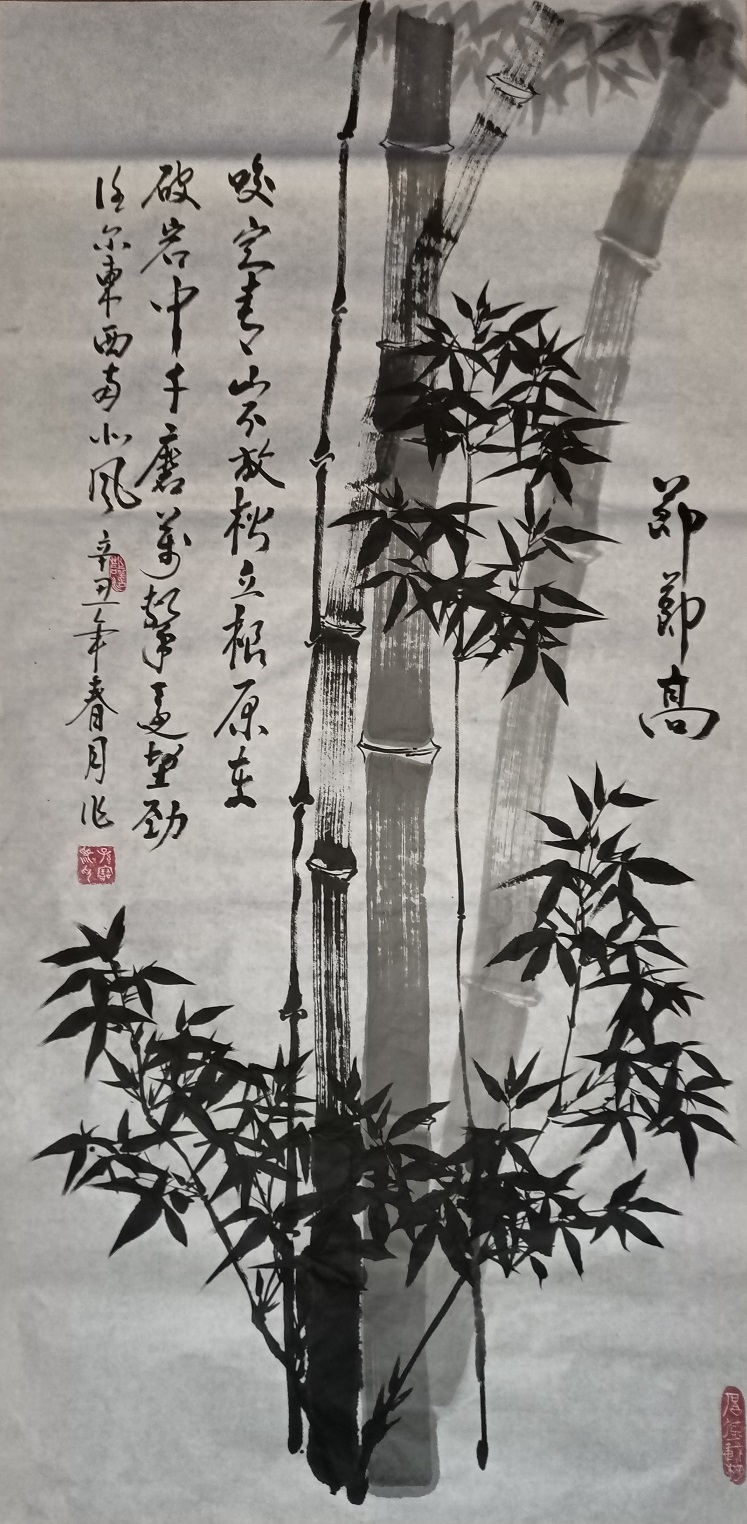 節節高
咬定青山不放松立根原在
破岩中千磨萬擊還堅勁
任尔東西南北風
辛丑年春月作